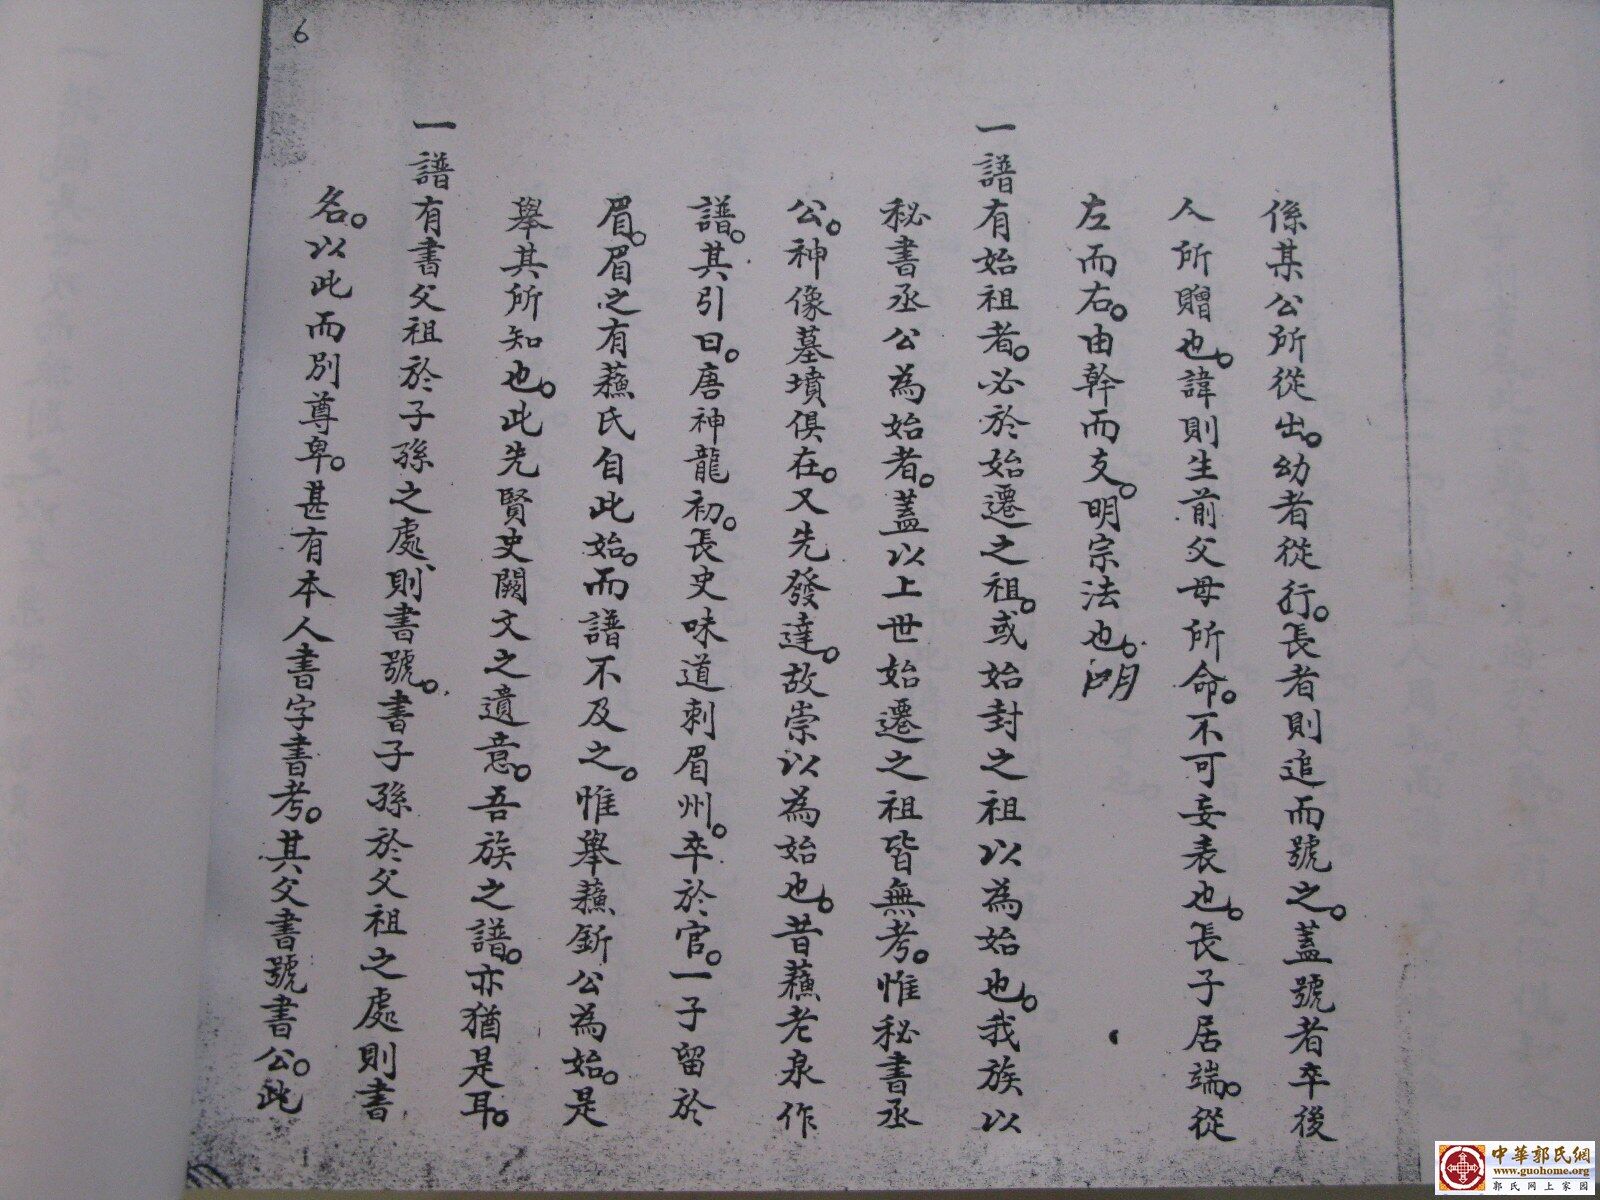 6
係某公所從出。幼者從行。長者則追而號之。蓋號者卒後
人所贈也。諱則生前父母所命。不可妄表也。長子居端。從
左而右。由幹而支。明宗法也。明
一譜有始祖者。必於始遷之祖。或始封之祖以為始也。我族以
秘書丞公為始者。蓋以上世始遷之祖皆無考。惟秘書丞
公。神像墓墳俱在。又先發達。故崇以為始也。昔蘓老泉作
譜。其引曰。唐神龍初。長史味道刺眉州。卒於官。一子留於
眉。眉之有蘓氏自此始。而譜不及之。惟舉蘓釿公為始。是
舉其所知也。此先賢史闕文之遺意。吾族之譜。亦猶是耳。
一譜有書父祖於子孫之處、則書號。書子孫於父祖之處則書
名。以此而別尊卑。甚有本人書字書考。其父書號書公。此
中華郭氏網
www.guohome.org
郭氏网上家园